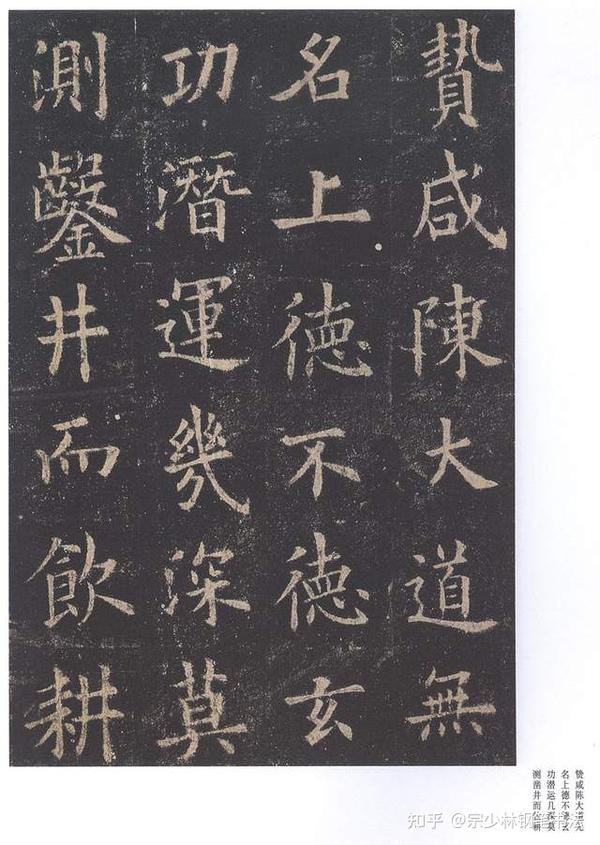 贄咸陳大道無
名上徳不徳玄
功潛運幾深莫
測鑿井而飲耕
贽咸陈大道无
名上德不德玄
功潜运几深莫
测凿井而饮耕
知乎 @宗少林钢笔书法